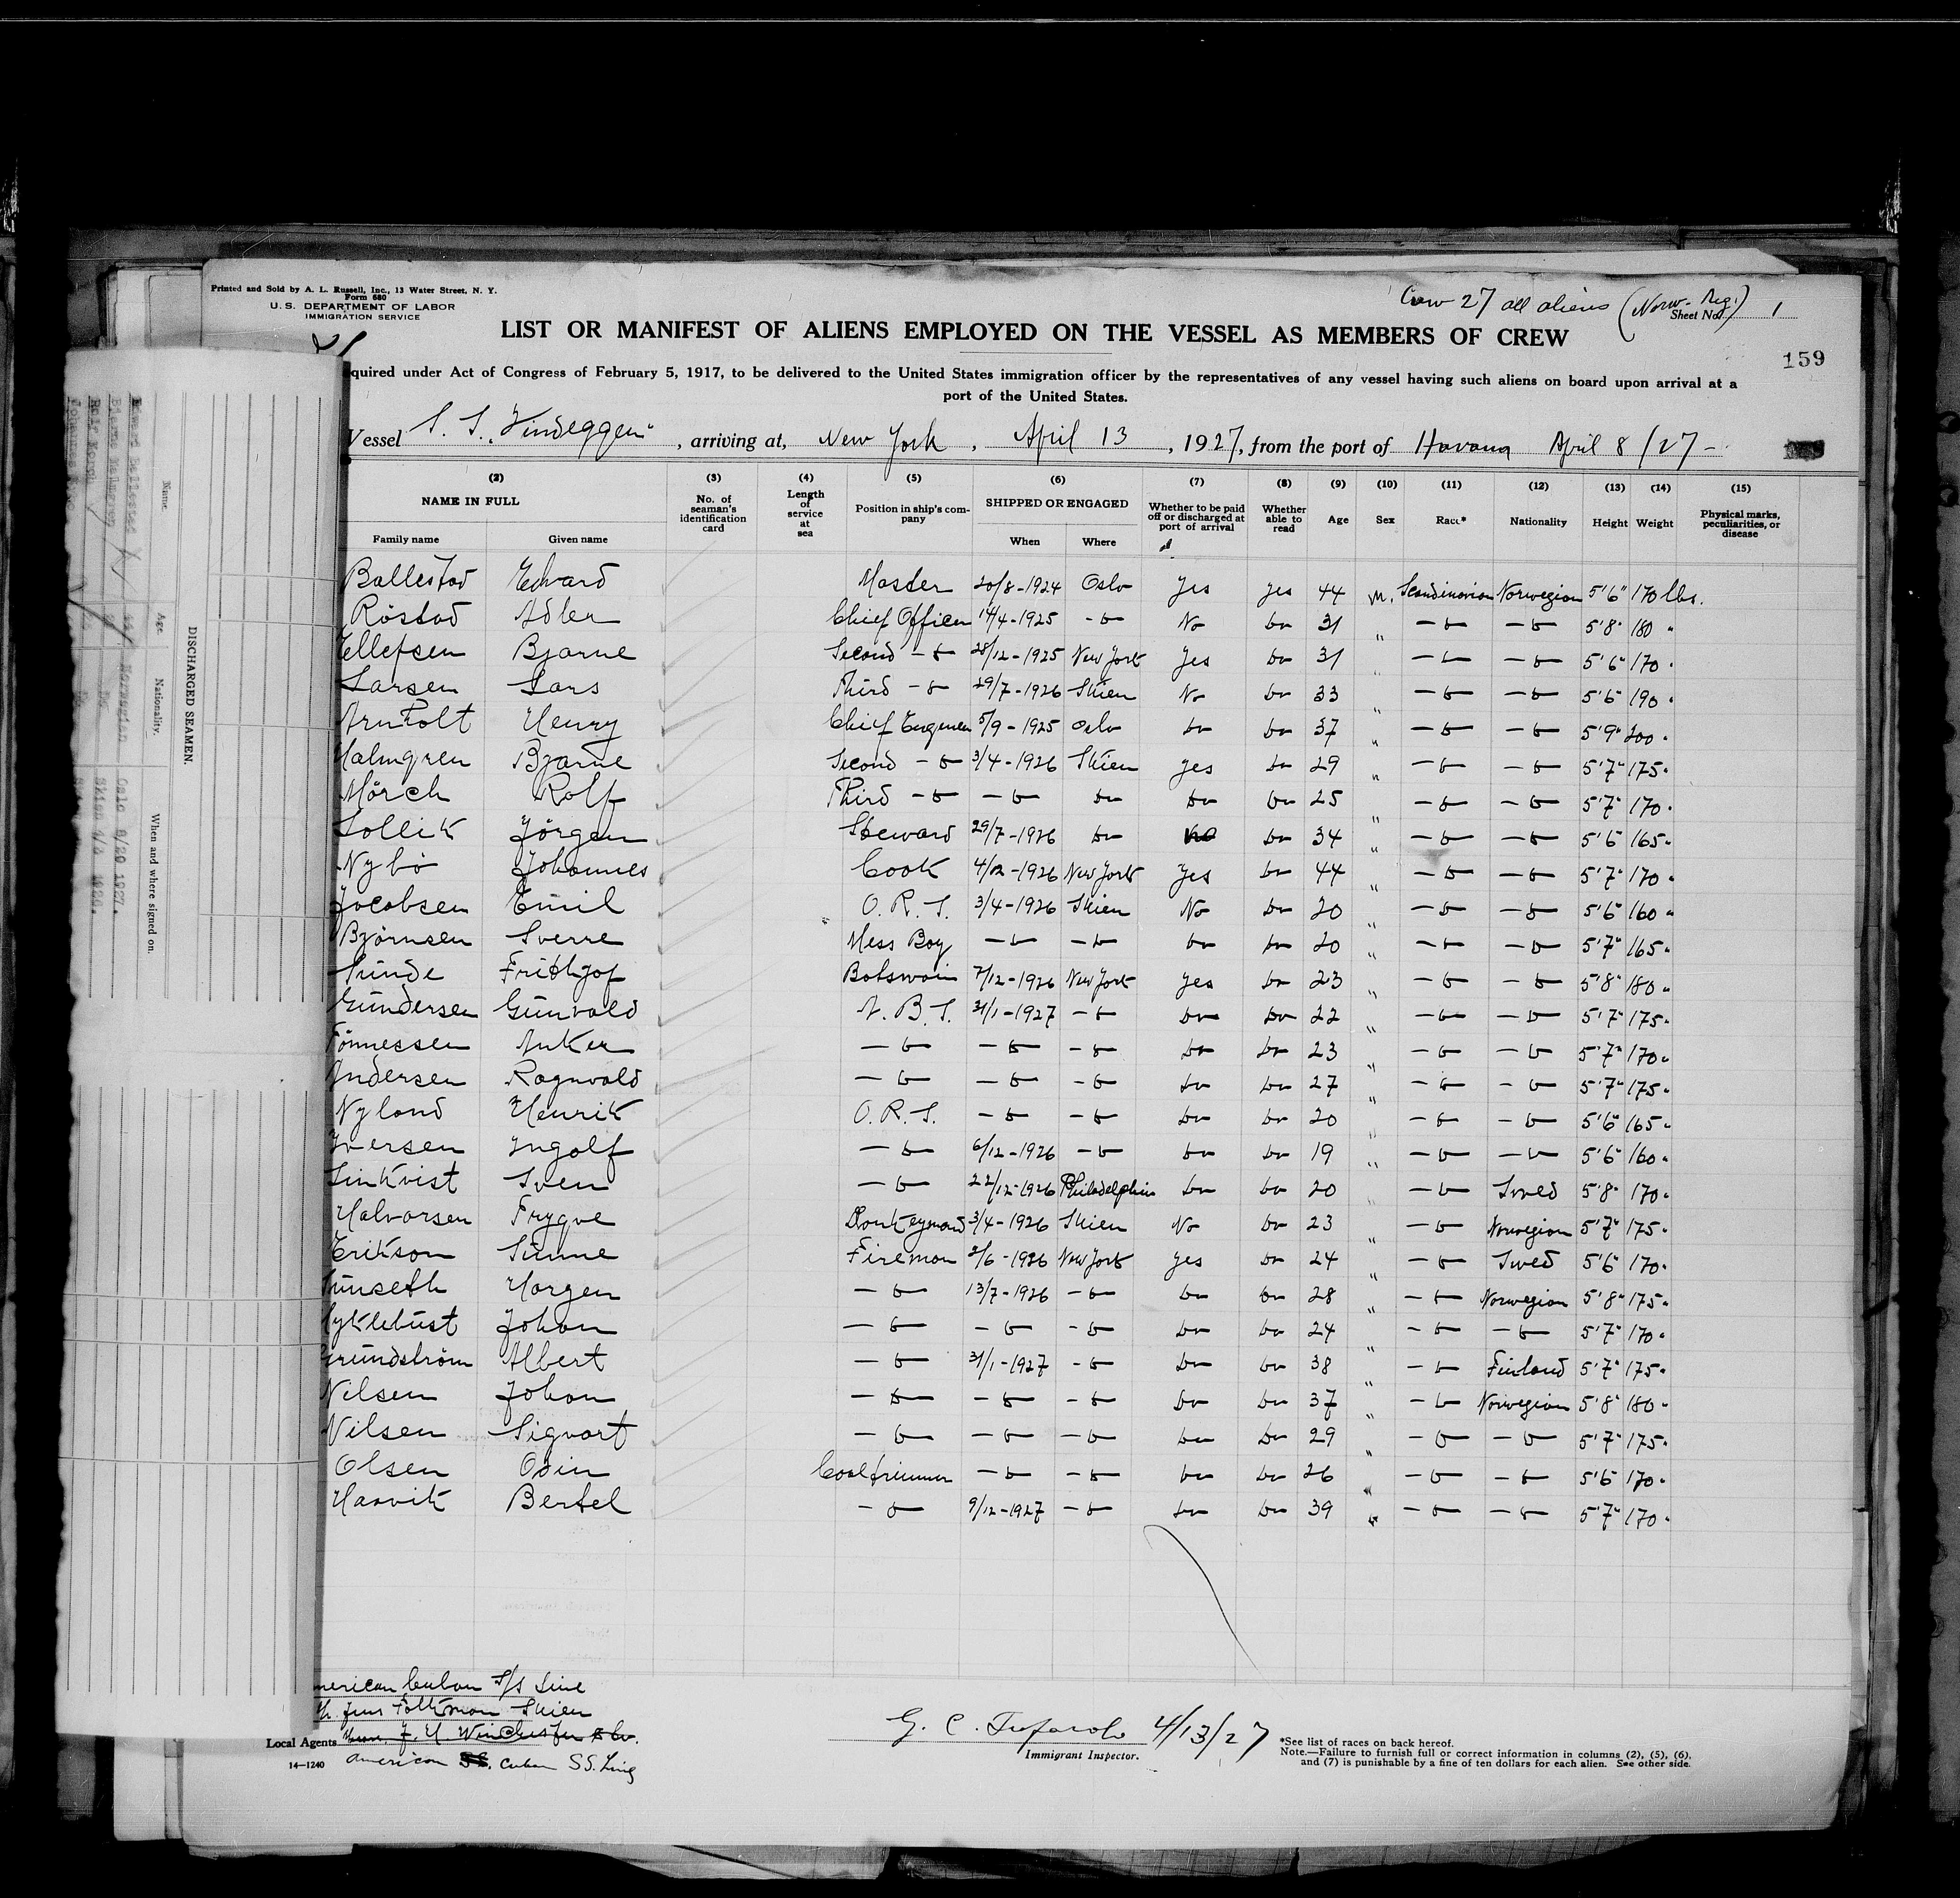 Printed and Sold by A. L. Russell, Inc., 13 Water Street, N. Y.
Form 680
U. S. DEPARTMENT OF LABOR
IMMIGRATION SERVICE
Crew 27 all aliens (Norw. Reg.)
Sheet No. 1
LIST OR MANIFEST OF ALIENS EMPLOYED ON THE VESSEL AS MEMBERS OF CREW
159
quired under Act of Congress of February 5, 1917, to be delivered to the United States immigration officer by the representatives of any vessel having such aliens on board upon arrival at a
port of the United States.
Vessel S. S. "Vindeggen", arriving at, New York, April 13, 1927, from the port of Havana April 8/27 -
(2) (3) (4) (5) (6) (7) (8) (9) (10) (11) (12) (13) (14) (15)
NAME IN FULL No. of seaman's identification card Length of service at sea Position in ship's company SHIPPED OR ENGAGED Whether to be paid off or discharged at port of arrival Whether able to read Age Sex Race* Nationality Height Weight Physical marks, peculiarities, or disease
Family name Given name When Where
Ballestad Edward Master 20/8-1924 Oslo Yes yes 44 m. Scandinavian Norwegian 5'6" 170 lbs.
Röstad Adler Chief Officer 14/4-1925 - " - No do 31 " - " - - " - 5'8" 180 "
Ellefsen Bjarne Second - " - 28/12-1925 New York Yes do 31 " - " - - " - 5'6" 170 "
Larsen Lars Third - " - 29/7-1926 Skien No do 33 " - " - - " - 5'6" 190 "
Arnholt Henry Chief Engineer 5/9-1925 Oslo do do 37 " - " - - " - 5'9" 200 "
Malmgren Bjarne Second - " - 3/4-1926 Skien yes do 29 " - " - - " - 5'7" 175 "
Mörch Rolf Third - " - - " - do do do 25 " - " - - " - 5'7" 170 "
Lollik Jörgen Steward 29/7-1926 do No do 34 " - " - - " - 5'6" 165 "
Nybö Johannes Cook 4/12-1926 New York Yes do 44 " - " - - " - 5'7" 170 "
Jacobsen Emil O. R. S. 3/4-1926 Skien No do 20 " - " - - " - 5'6" 160 "
Björnsen Sverre Mess Boy - " - - " - do do 20 " - " - - " - 5'7" 165 "
Sunde Frithjof Botswain 7/12-1926 New York yes do 23 " - " - - " - 5'8" 180 "
Gundersen Gunvald A. B. S. 31/1-1927 - " - do do 22 " - " - - " - 5'7" 175 "
Tönnessen Anker - " - - " - - " - do do 23 " - " - - " - 5'7" 170 "
Andersen Ragnvald - " - - " - - " - do do 27 " - " - - " - 5'7" 175 "
Nyland Henrik O. R. S. - " - - " - do do 20 " - " - - " - 5'6" 165 "
Iversen Ingolf - " - 6/12-1926 - " - do do 19 " - " - - " - 5'6" 160 "
Linkvist Sven - " - 22/12-1926 Philadelphia do do 20 " - " - Swed 5'8" 170 "
Halvorsen Trygve Donkeyman 3/4-1926 Skien No do 23 " - " - Norwegian 5'7" 175 "
Erikson Sunne Fireman 2/6-1926 New York yes do 24 " - " - Swed 5'6" 170 "
unseth Morgen - " - 13/7-1926 - " - do do 28 " - " - Norwegian 5'8" 175 "
yklebust Johan - " - - " - - " - do do 24 " - " - - " - 5'7" 170 "
Grundström Albert - " - 31/1-1927 - " - do do 38 " - " - Finland 5'7" 175 "
Nilsen Johan - " - - " - - " - do do 37 " - " - Norwegian 5'8" 180 "
Nilsen Sigvart - " - - " - - " - do do 29 " - " - - " - 5'7" 175 "
Olsen Odin Coaltrimmer - " - - " - do do 26 " - " - - " - 5'6" 170 "
Haavik Bertel - " - 9/12-1927 - " - do do 39 " - " - - " - 5'7" 170 "
merican Cuban S/S Line
Skien
Local Agents J. H. Winchester & Co.
American Cuban SS. Line
14—1240
4/13/27
Immigrant Inspector.
*See list of races on back hereof.
Note.—Failure to furnish full or correct information in columns (2), (5), (6),
and (7) is punishable by a fine of ten dollars for each alien. See other side.
DISCHARGED SEAMEN.
Name. Age. Nationality. When and where signed on.